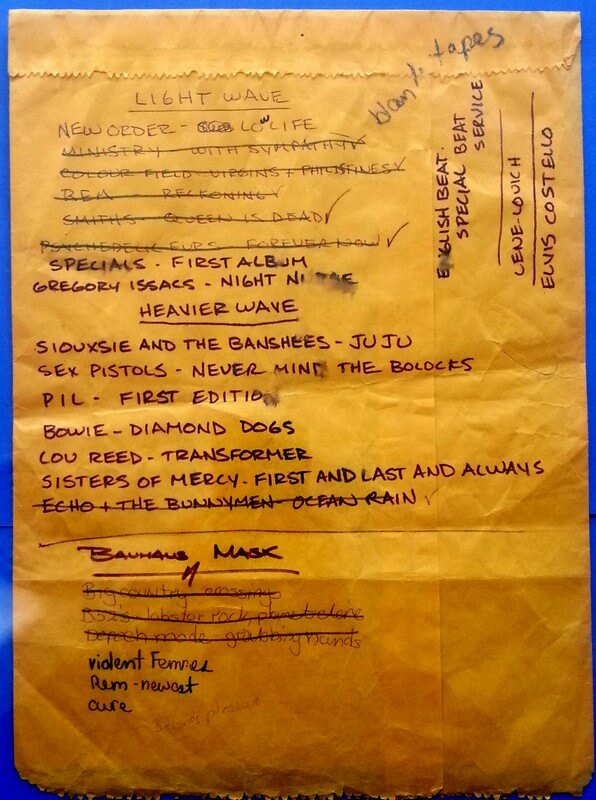 blank tapes
LIGHT WAVE
NEW ORDER - LOW LIFE
MINISTRY - WITH SYMPATHY ✓
COLOUR FIELD - VIRGINS + PHILISTINES ✓
REM - RECKONING ✓
SMITHS - QUEEN IS DEAD ✓
PSYCHEDELIC FURS - FOREVER NOW ✓
SPECIALS - FIRST ALBUM
GREGORY ISSACS - NIGHT
HEAVIER WAVE
SIOUXSIE AND THE BANSHEES - JUJU
SEX PISTOLS - NEVER MIND THE BOLOCKS
PIL - FIRST EDITION
BOWIE - DIAMOND DOGS
LOU REED - TRANSFORMER
SISTERS OF MERCY - FIRST AND LAST AND ALWAYS
ECHO + THE BUNNYMEN - OCEAN RAIN ✓
BAUHAUS MASK
Big country crossing
B52's lobster rock planet claire
Depech mode grabbing hands
violent Femmes
Rem - newest
cure
ENGLISH BEAT.
SPECIAL BEAT
SERVICE
LENE-LOVICH
ELVIS COSTELLO